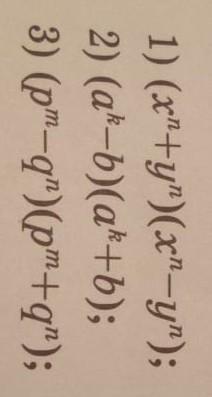 1) (xⁿ+yⁿ)(xⁿ−yⁿ);
2) (aᵏ−b)(aᵏ+b);
3) (pᵐ−qⁿ)(pᵐ+qⁿ);